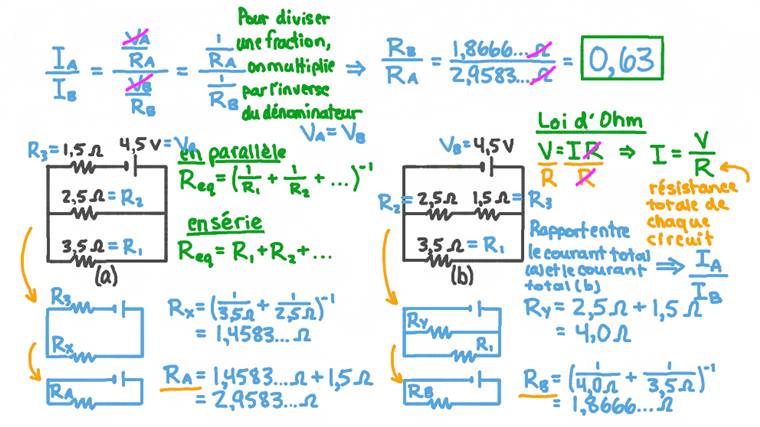 I_A / I_B = (V_A / R_A) / (V_B / R_B) = (1 / R_A) / (1 / R_B)
Pour diviser
une fraction,
on multiplie
par l'inverse
du dénominateur
⇒ R_B / R_A = 1,8666...Ω / 2,9583...Ω = 0,63
V_A = V_B
R₃ = 1,5 Ω
4,5 V = V_A
2,5 Ω = R₂
3,5 Ω = R₁
(a)
en parallèle
R_eq = (1/R₁ + 1/R₂ + ...)⁻¹
en série
R_eq = R₁ + R₂ + ...
V_B = 4,5 V
R₂ = 2,5 Ω
1,5 Ω = R₃
3,5 Ω = R₁
(b)
Loi d'Ohm
V = I R ⇒ I = V / R
R R
résistance
totale de
chaque
circuit
Rapport entre
le courant total
(a) et le courant
total (b)
⇒ I_A / I_B
R₃
R_X
R_X = (1/3,5Ω + 1/2,5Ω)⁻¹
= 1,4583...Ω
R_A
R_A = 1,4583...Ω + 1,5Ω
= 2,9583...Ω
R_Y
R₁
R_Y = 2,5Ω + 1,5Ω
= 4,0Ω
R_B
R_B = (1/4,0Ω + 1/3,5Ω)⁻¹
= 1,8666...Ω